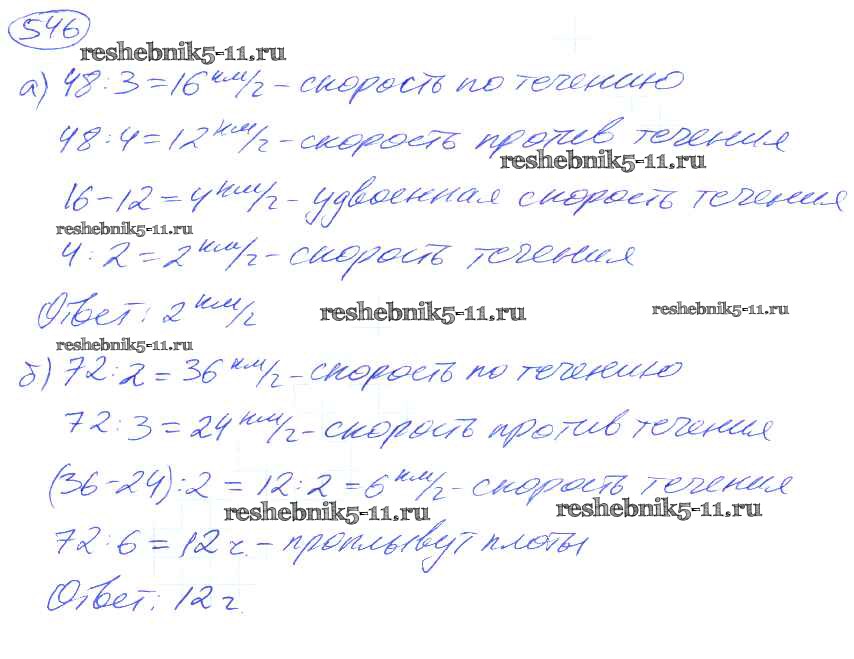 546
reshebnik5-11.ru
а) 48 : 3 = 16 км/г - скорость по течению
48 : 4 = 12 км/г - скорость против течения
reshebnik5-11.ru
16 - 12 = 4 км/г - удвоенная скорость течения
reshebnik5-11.ru
4 : 2 = 2 км/г - скорость течения
Ответ: 2 км/г
reshebnik5-11.ru
reshebnik5-11.ru
reshebnik5-11.ru
б) 72 : 2 = 36 км/г - скорость по течению
72 : 3 = 24 км/г - скорость против течения
(36 - 24) : 2 = 12 : 2 = 6 км/г - скорость течения
reshebnik5-11.ru
reshebnik5-11.ru
72 : 6 = 12 г. - проплывут плоты
Ответ: 12 г.